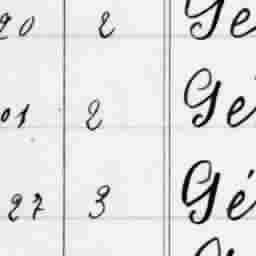 20 2 Ge
01 2 Gé
27 3 Gé